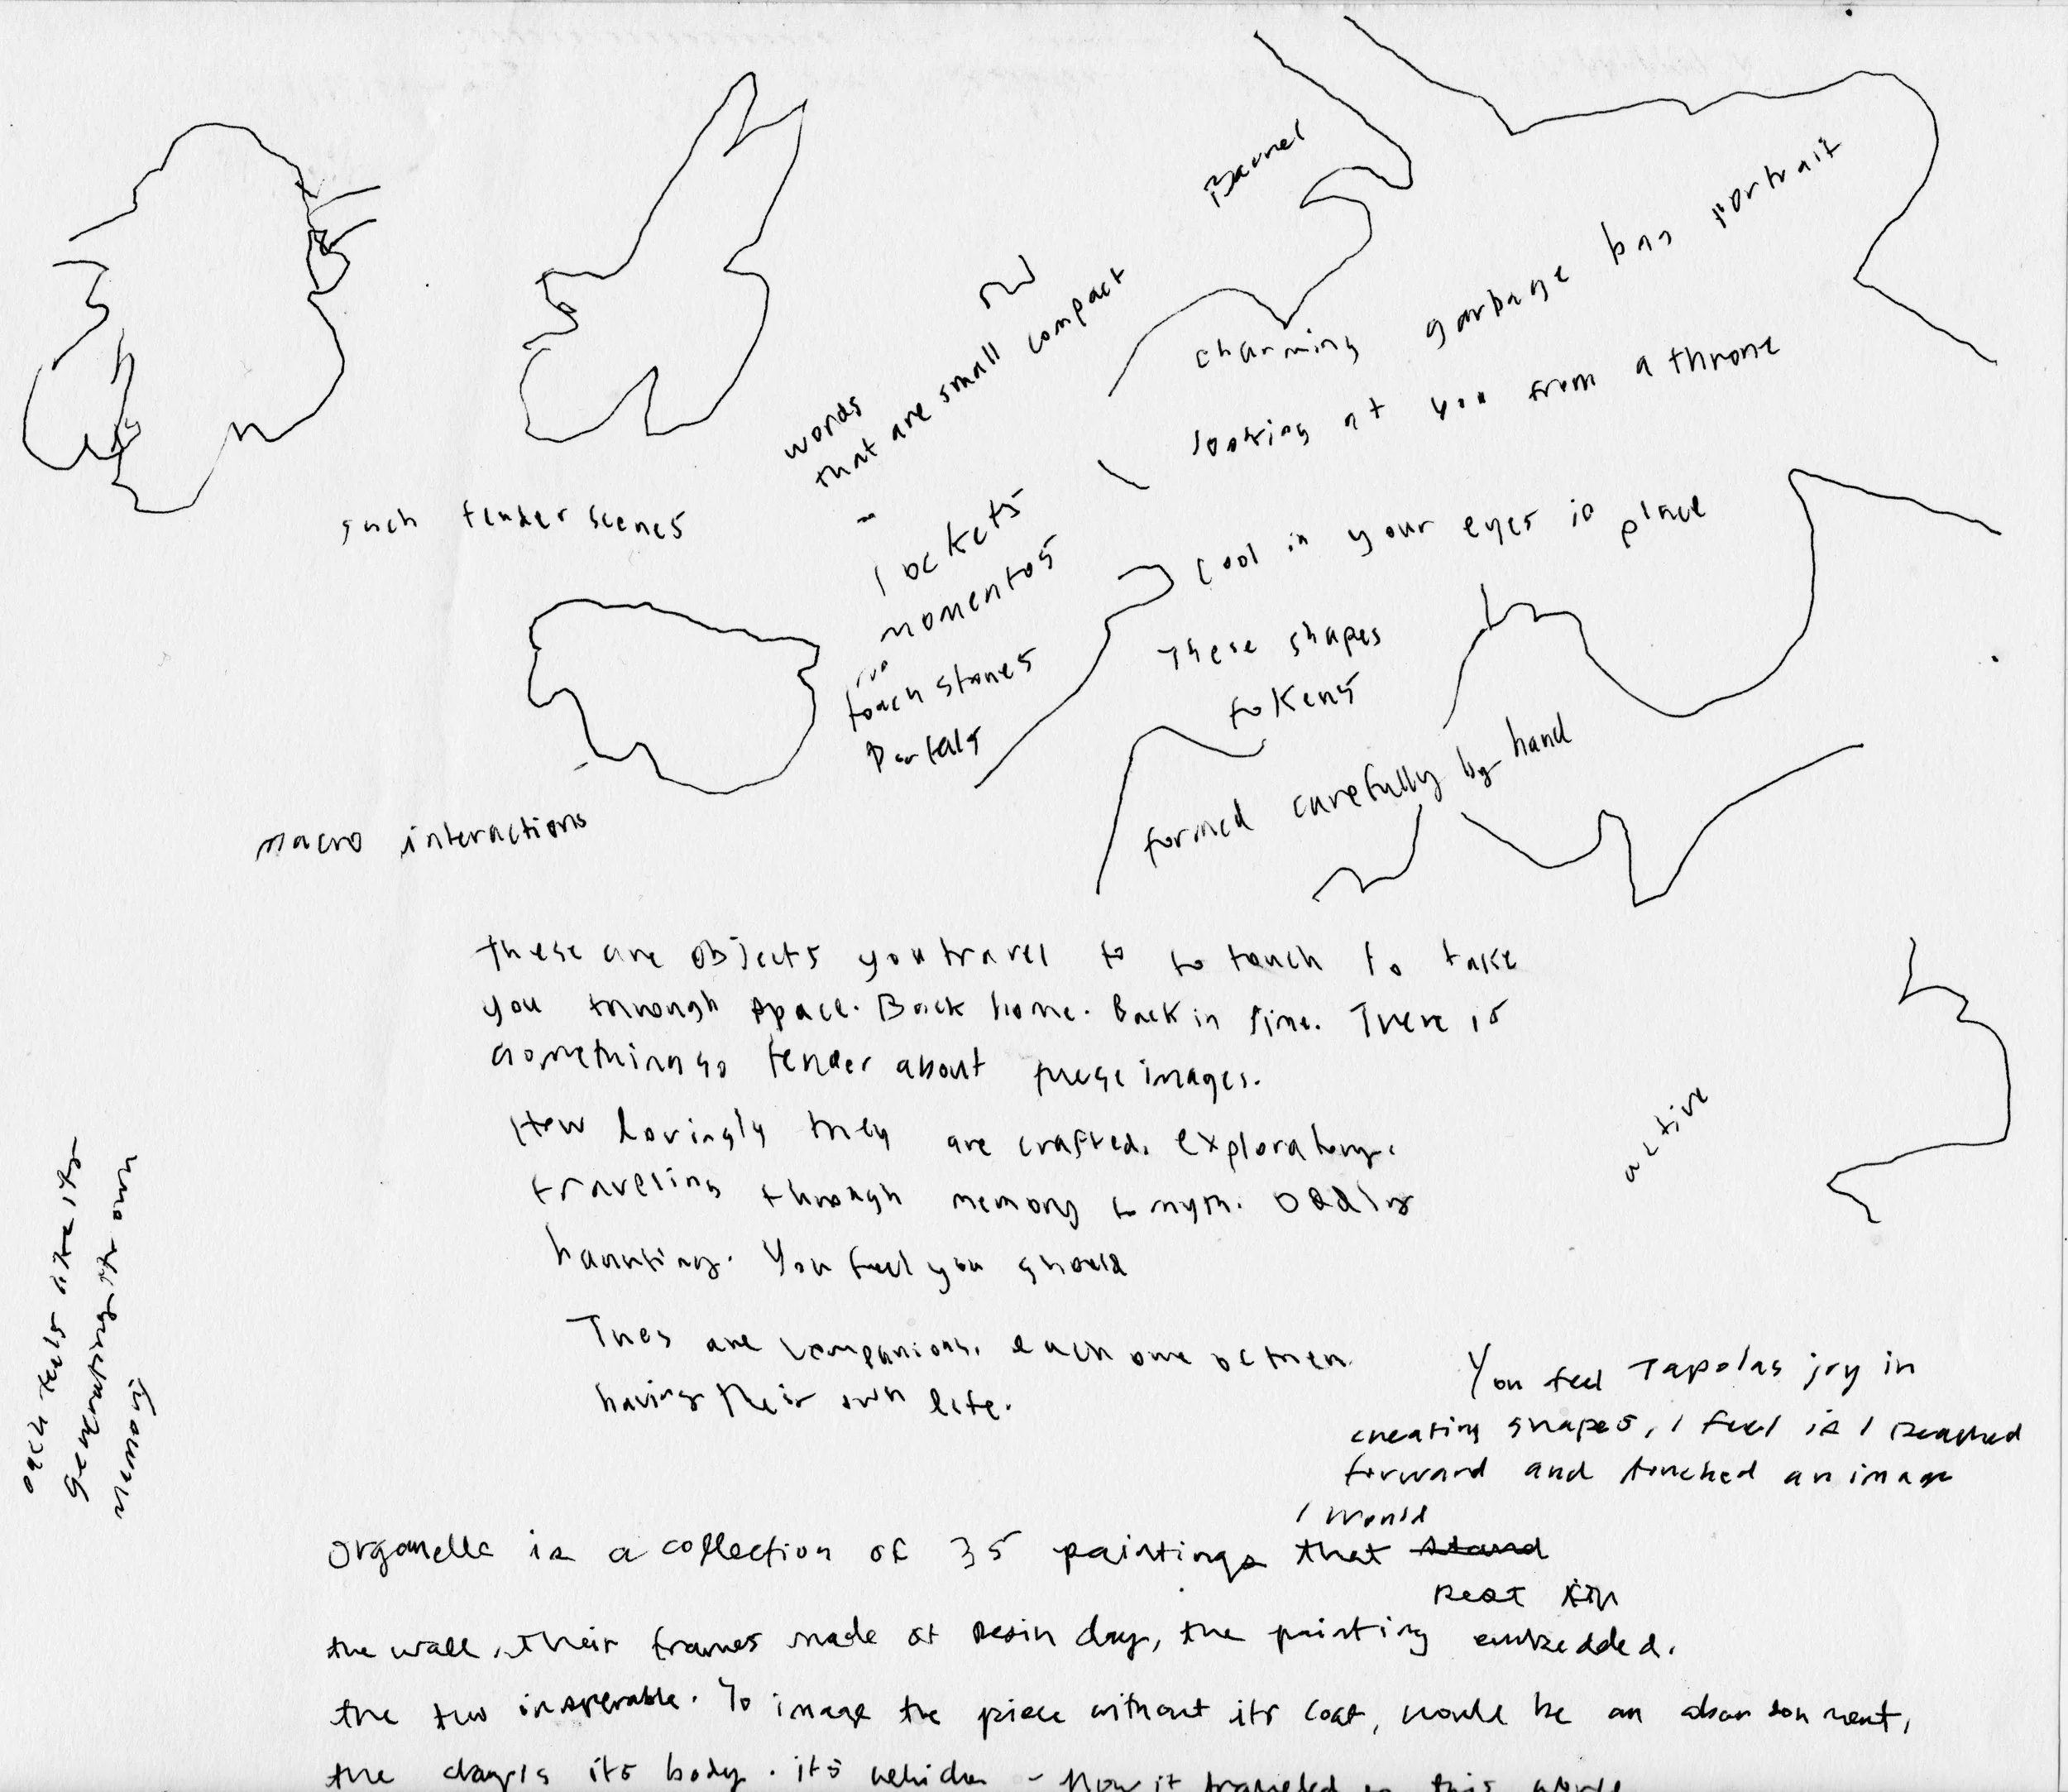 Barnel
words
that are small compact
charming garbage bag portrait
looking at you from a throne
such tender scenes
lockets
momentos
touch stones
Portals
Cool in your eyes is place
These shapes
tokens
formed carefully by hand
macro interactions
these are objects you travel to to touch to take
you through space. Back home. Back in time. There is
something so tender about these images.
How lovingly they are crafted. exploratory.
traveling through memory to myth. Oddly
haunting. You feel you should
active
They are companions. each one of them
having their own life.
each feels like its
generating its own
memory
You feel Tapolas joy in
creating shapes, I feel is I reached
forward and touched an image
I would
Organelle is a collection of 35 paintings that stand
rest in
the wall. Their frames made of resin clay, the painting embedded.
the two inseperable. To image the piece without its coat, would be an abandonment,
the clay is its body. its vehicle - how it traveled to this world